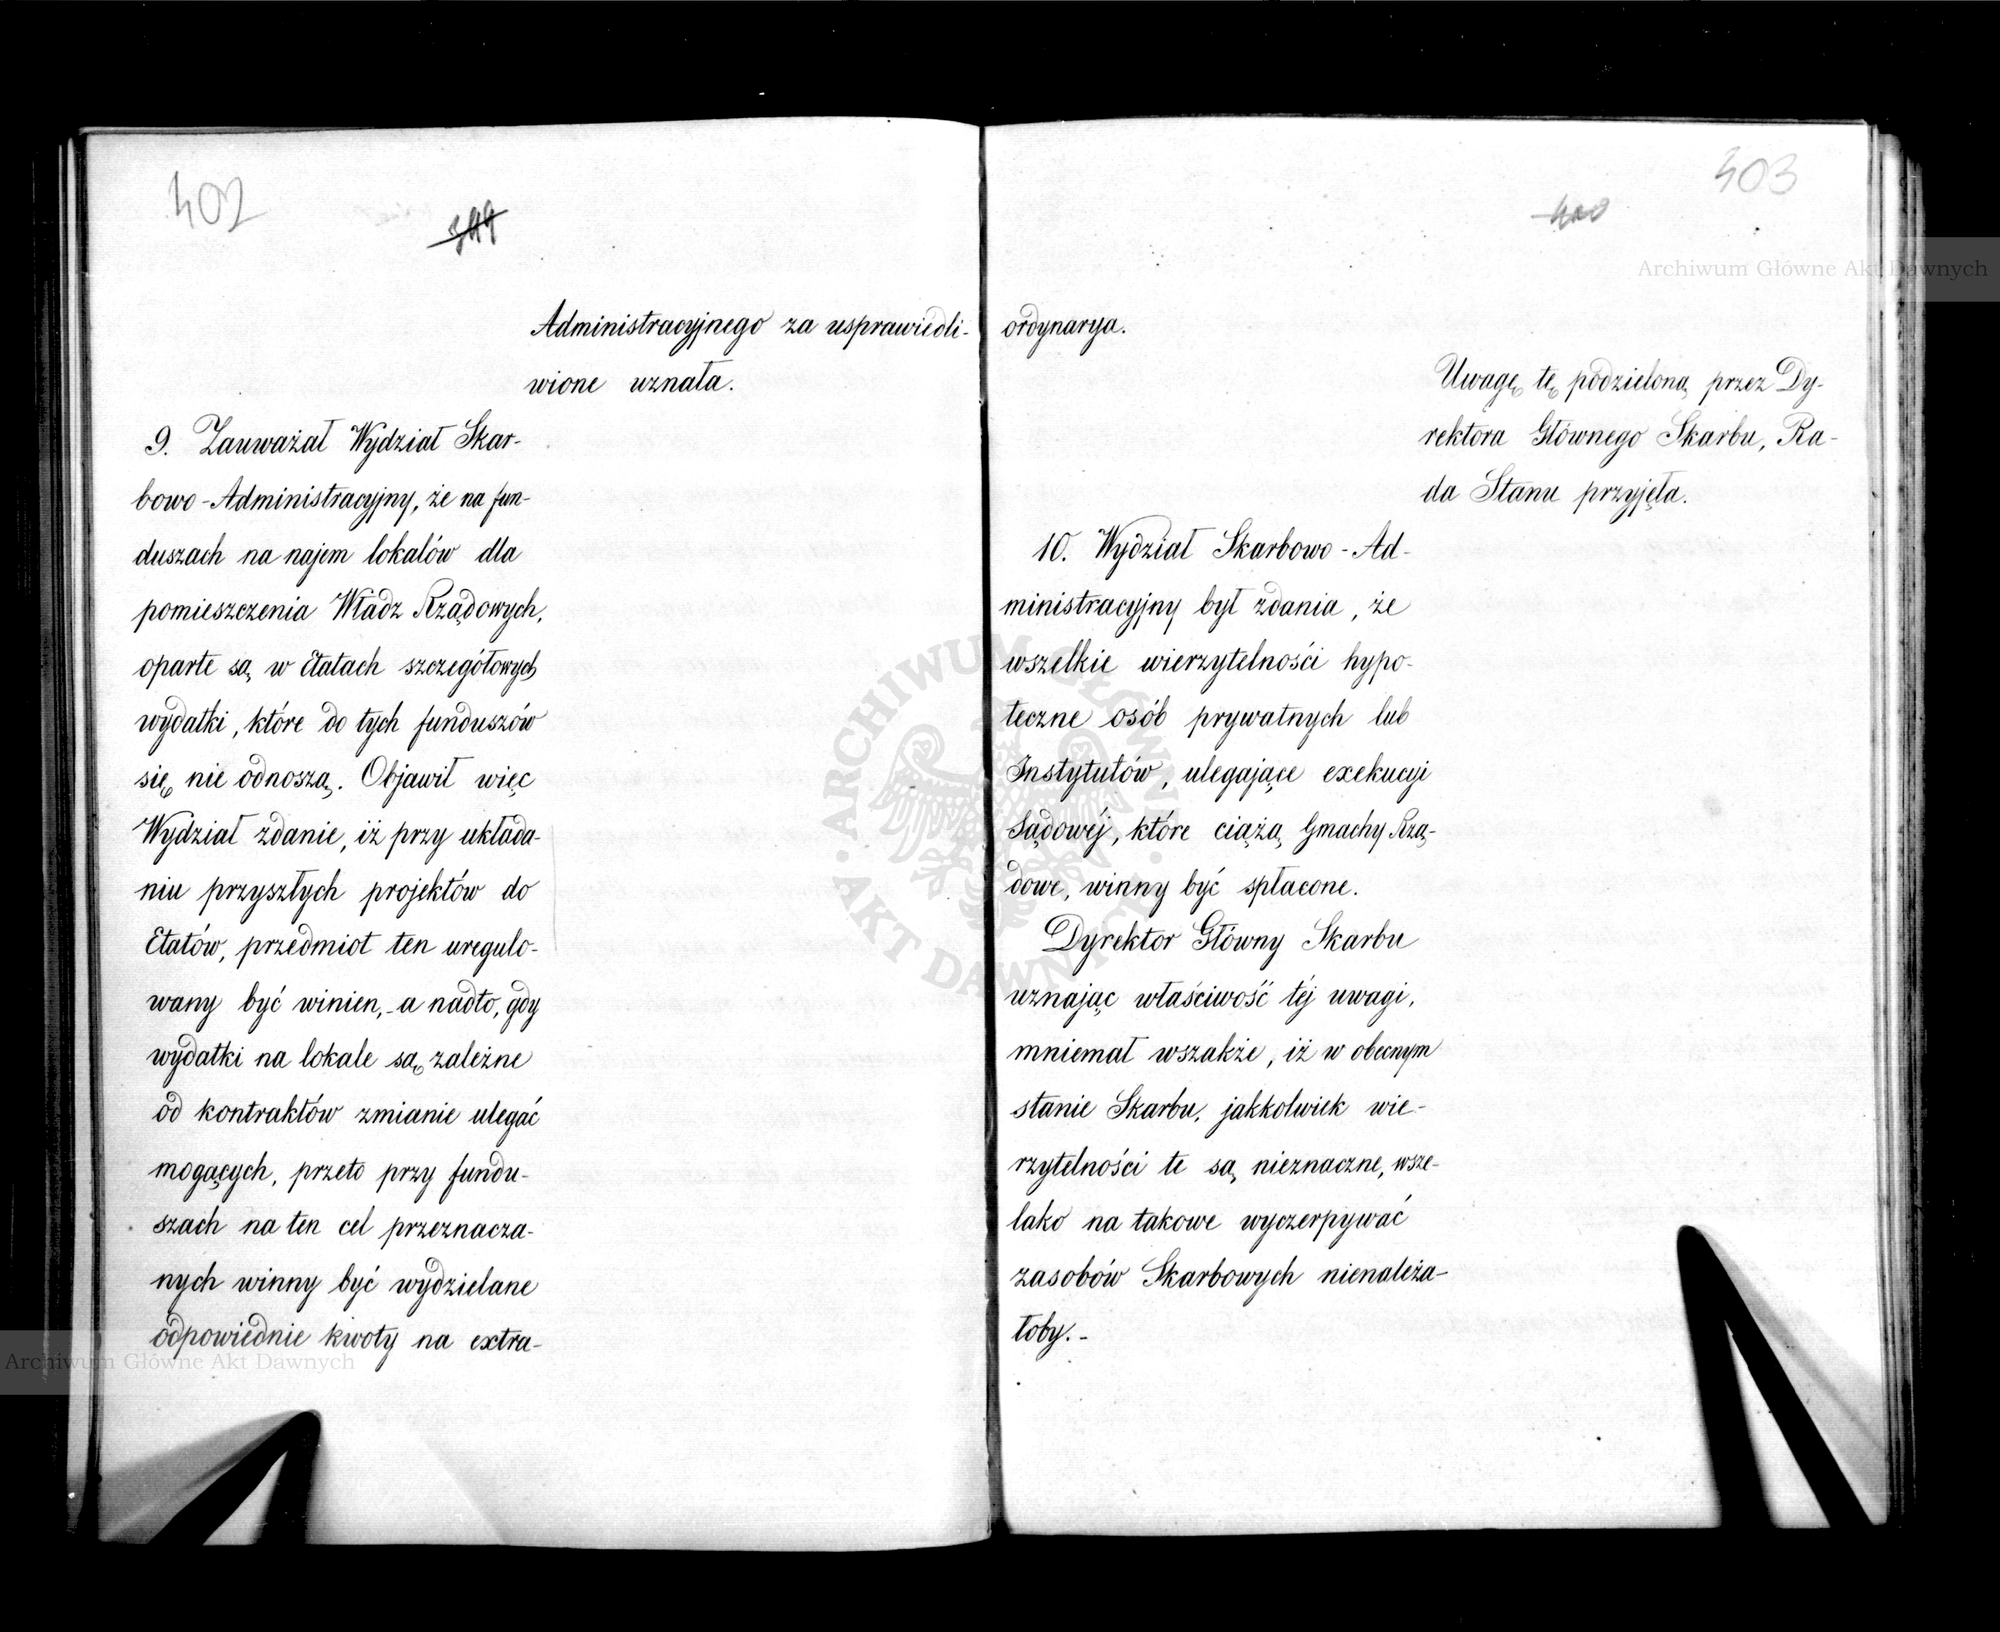 402
399
Administracyjnego za usprawiedli-
wione uznała.
9. Zauważał Wydział Skar-
bowo-Administracyjny, że na fun-
duszach na najem lokalów dla
pomieszczenia Władz Rządowych,
oparte są w Etatach szczegółowych
wydatki, które do tych funduszów
się nie odnoszą. Objawił więc
Wydział zdanie, iż przy układa-
niu przyszłych projektów do
Etatów, przedmiot ten uregulo-
wany być winien,- a nadto, gdy
wydatki na lokale są zależne
od kontraktów zmianie ulegać
mogących, przeto przy fundu-
szach na ten cel przeznacza-
nych winny być wydzielane
odpowiednie kwoty na extra-
403
400
ordynarya.
Uwagę tę podzieloną przez Dy-
rektora Głównego Skarbu, Ra-
da Stanu przyjęła.
10. Wydział Skarbowo-Ad-
ministracyjny był zdania, że
wszelkie wierzytelności hypo-
teczne osób prywatnych lub
Instytutów, ulegające exekucyi
Sądowéj, które ciążą Gmachy Rzą-
dowe, winny być spłacone.
Dyrektor Główny Skarbu
uznając właściwość téj uwagi,
mniemał wszakże, iż w obecnym
stanie Skarbu, jakkolwiek wie-
rzytelności te są nieznaczne, wsze-
lako na takowe wyczerpywać
zasobów Skarbowych nienależa-
łoby.-
Archiwum Główne Akt Dawnych
ARCHIWUM GŁÓWNE AKT DAWNYCH
Archiwum Główne Akt Dawnych